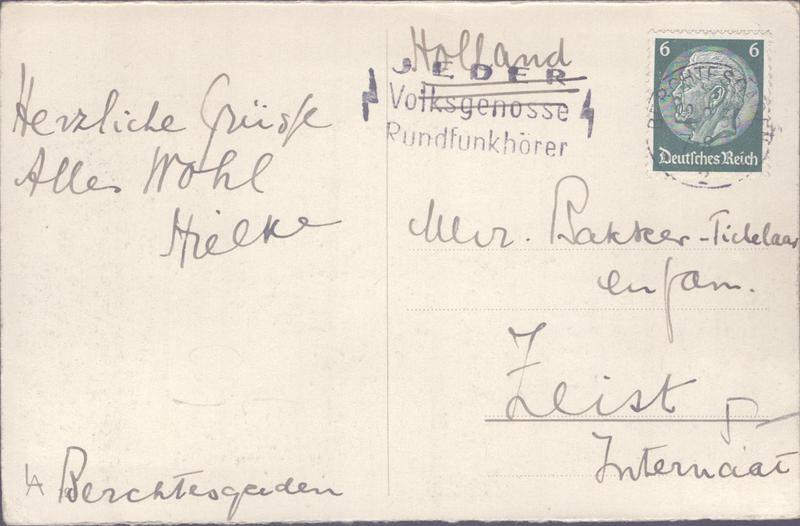 Herzliche Grüsse
Alles Wohl
Hielke
Berchtesgaden
Holland
JEDER
Volksgenosse
Rundfunkhörer
6 6
Deutsches Reich
Mevr. Bakker-Tichelaar
en fam.
Zeist
Internaat